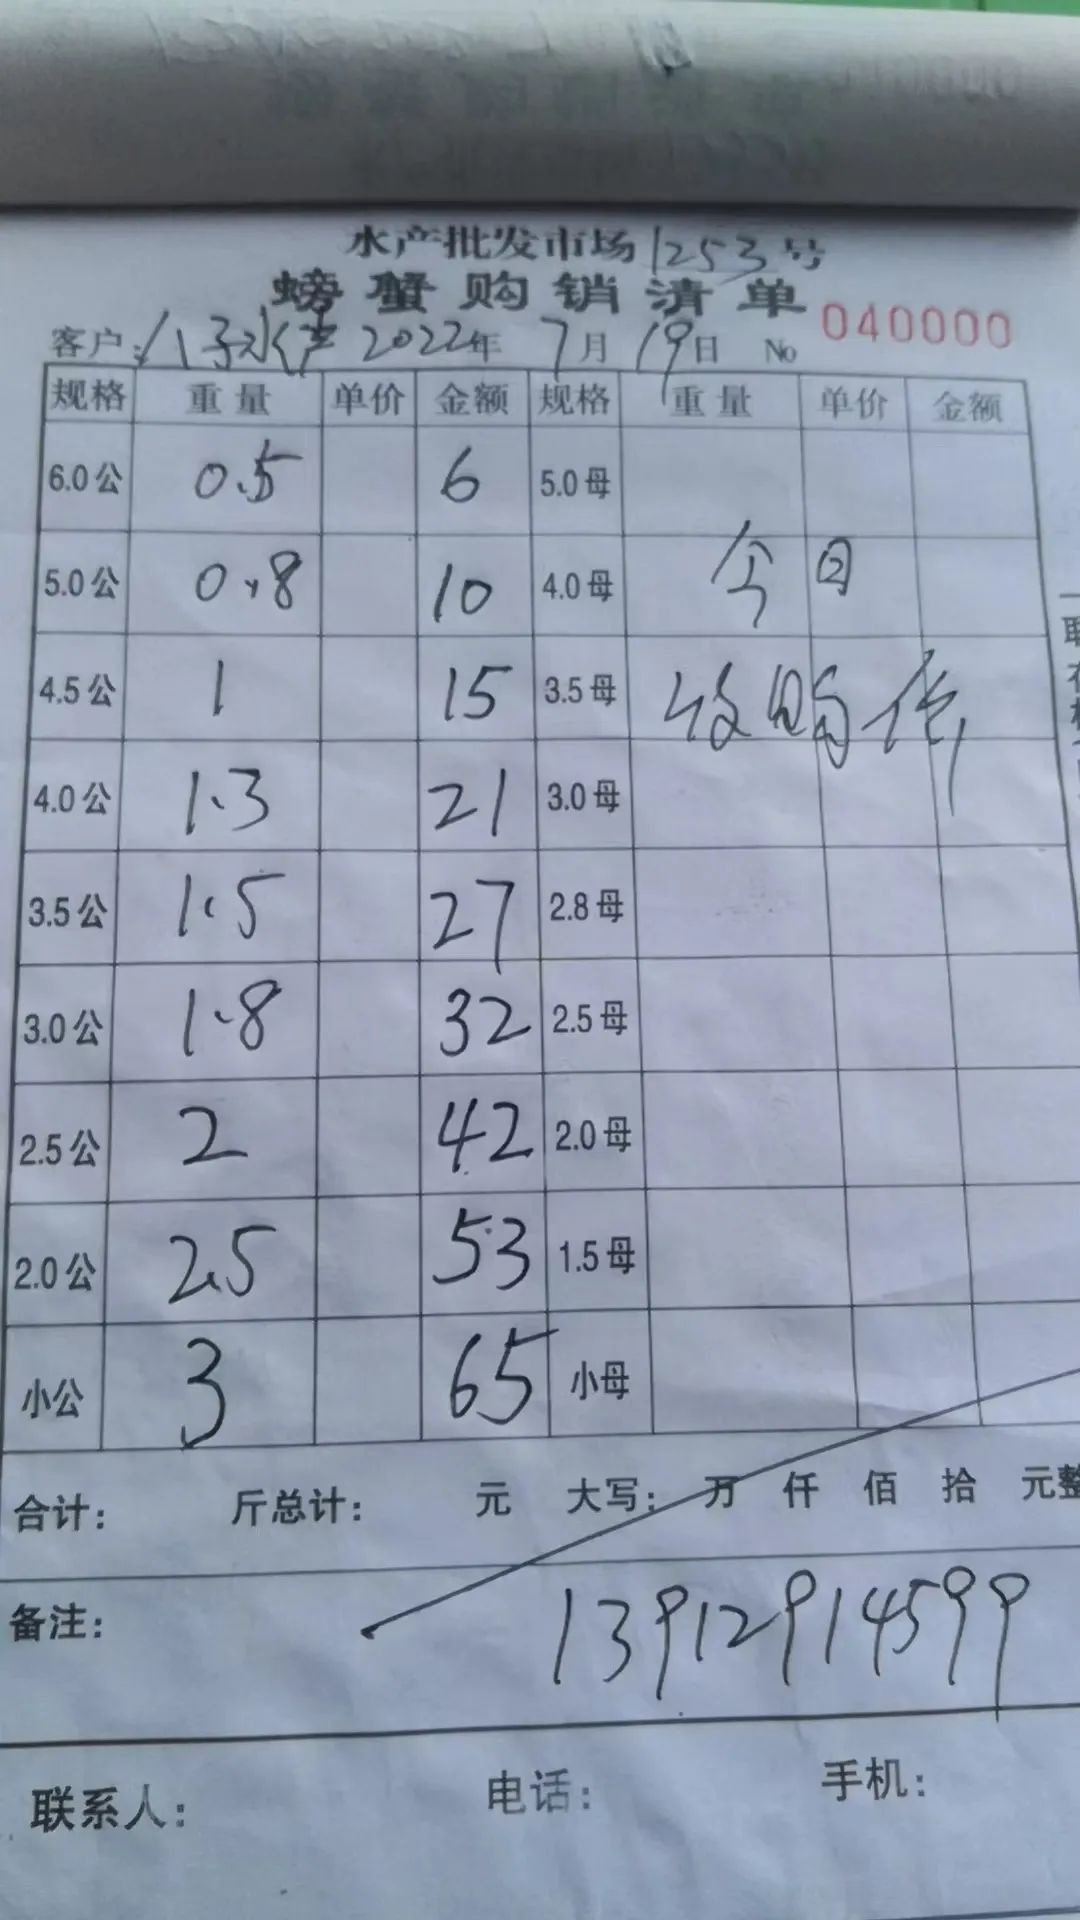 水产批发市场1253号
螃蟹购销清单
客户:八子水产 2022年 7月 19日 No 040000
规格 重量 单价 金额 规格 重量 单价 金额
6.0公 0.5 6 5.0母
5.0公 0.8 10 4.0母 今日
4.5公 1 15 3.5母 收购价
4.0公 1.3 21 3.0母
3.5公 1.5 27 2.8母
3.0公 1.8 32 2.5母
2.5公 2 42 2.0母
2.0公 2.5 53 1.5母
小公 3 65 小母
合计: 斤总计: 元 大写: 万 仟 佰 拾 元整
备注: 13912914599
联系人: 电话: 手机: